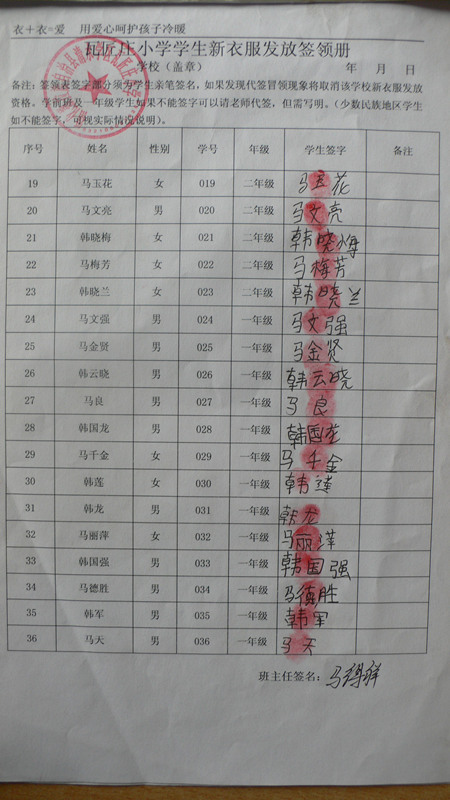 衣+衣=爱 用爱心呵护孩子冷暖
瓦匠庄小学学生新衣服发放签领册
学校（盖章） 年 月 日
备注：签领表签字部分须为学生亲笔签名，如果发现代签冒领现象将取消该学校新衣服发放
资格。学前班及一年级学生如果不能签字可以请老师代签，但需写明。（少数民族地区学生
如不能签字，可视实际情况说明）。
序号 姓名 性别 学号 年级 学生签字 备注
19 马玉花 女 019 二年级 马玉花
20 马文亮 男 020 二年级 马文亮
21 韩晓梅 女 021 二年级 韩晓梅
22 马梅芳 女 022 二年级 马梅芳
23 韩晓兰 女 023 二年级 韩晓兰
24 马文强 男 024 一年级 马文强
25 马金贤 男 025 一年级 马金贤
26 韩云晓 男 026 一年级 韩云晓
27 马良 男 027 一年级 马良
28 韩国龙 男 028 一年级 韩国龙
29 马千金 女 029 一年级 马千金
30 韩莲 女 030 一年级 韩莲
31 韩龙 男 031 一年级 韩龙
32 马丽萍 女 032 一年级 马丽萍
33 韩国强 男 033 一年级 韩国强
34 马德胜 男 034 一年级 马德胜
35 韩军 男 035 一年级 韩军
36 马天 男 036 一年级 马天
班主任签名：马